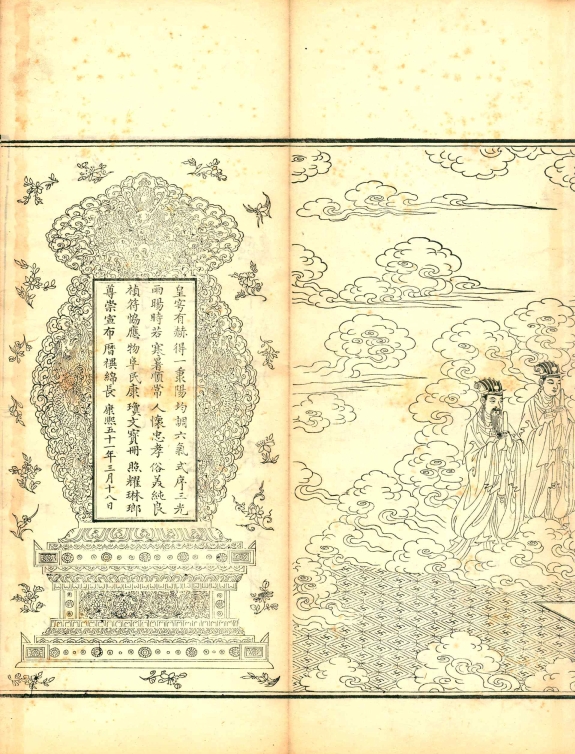 皇穹有赫得一秉陽均調六氣式序三光
雨暘時若寒暑順常人懷忠孝俗美純良
禎符恊應物阜民康瓊文寶冊照耀琳瑯
尊崇宣布曆禩綿長康熙五十一年三月十八日